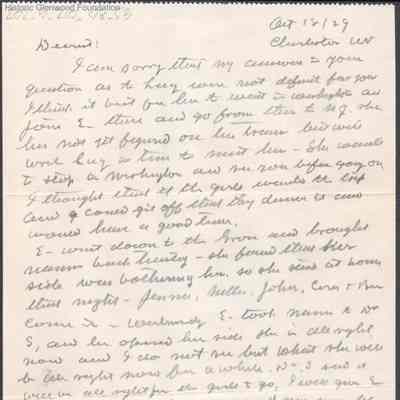 Historic Glenwood Foundation
Oct 18/29
Charleston W
Dearest:
I am sorry that my answer to your
question as to Lucy were not definit for you
I think it best for her to wait in Washington and
join E - there and go from there to N.Y. she
has not yet figured on her train but will
work Lucy in time to meet her - She wants
to stop in Washington and see you before going on
I thought that if the girls wanted the trip
and I could get off that they deserve it and
would have a good time.
E - went down to the Grove and brought
nann back - she found that her
side was bothering her. so she staid at home
that night - Jennie, Nellie, John, Cora & Ben
came in - Wednesday E - took nann to Dr
S, and he opened her side she is all right
now and I do not see but what she will
be all right now for a while. Dr. S said it
will be all right for the girls to go, I will give E